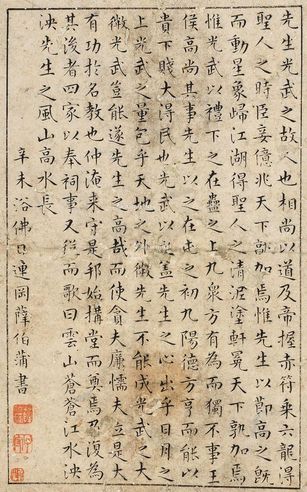 先生光武之故人也相尚以道及帝握赤符乘六龍得
聖人之時臣妾億兆天下孰加焉惟先生以節高之既
而動星象歸江湖得聖人之清泥塗軒冕天下孰加焉
惟光武以禮下之在蠱之上九衆方有為而獨不事王
侯高尚其事先生以之在屯之初九陽德方亨而能以
貴下賤大得民也光武以之蓋先生之心出乎日月之
上光武之量包乎天地之外微先生不能成光武之大
微光武豈能遂先生之高哉而使貪夫廉懦夫立是大
有功於名教也仲淹來守是邦始構堂而奠焉乃復為
其後者四家以奉祠事又從而歌曰雲山蒼蒼江水泱
泱先生之風山高水長
辛未浴佛日連岡薛伯蒲書